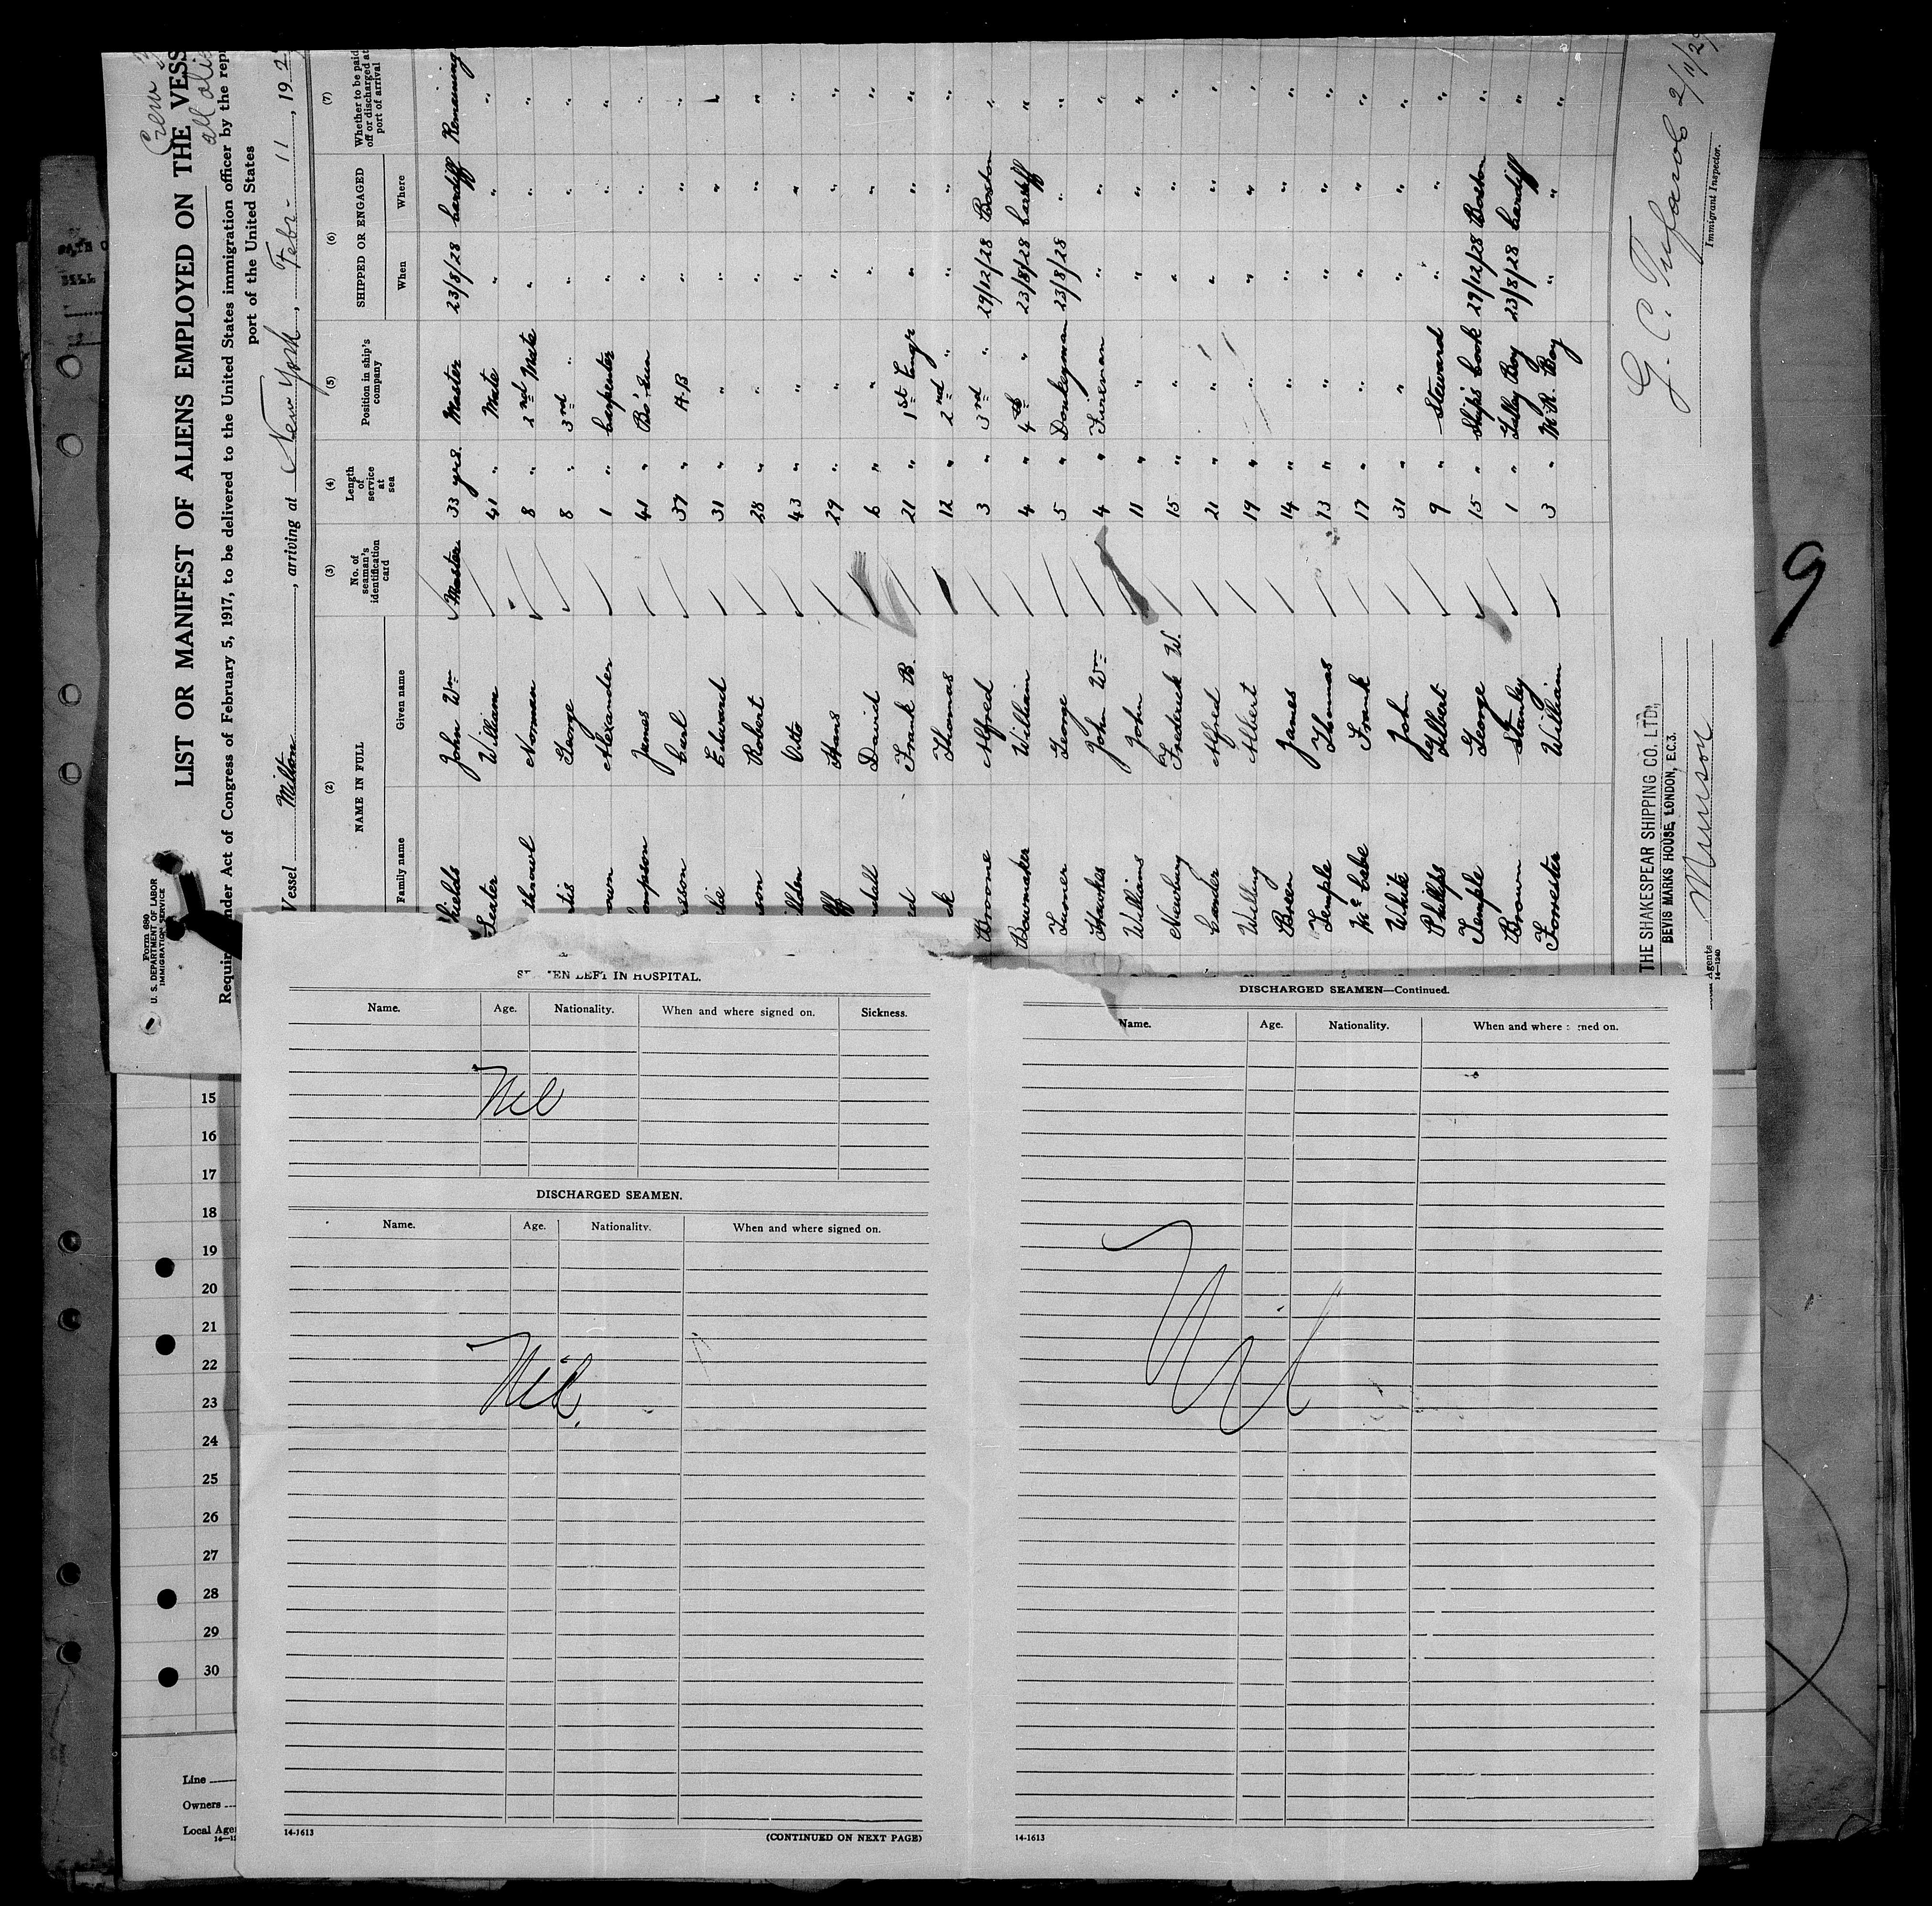 Form 680
U. S. DEPARTMENT OF LABOR
IMMIGRATION SERVICE
Crew
all
LIST OR MANIFEST OF ALIENS EMPLOYED ON THE VESS
nder Act of Congress of February 5, 1917, to be delivered to the United States immigration officer by the rep
port of the United States
Vessel Milton, arriving at New York, Febr- 11, 192
(2) (3) (4) (5) (6) (7)
NAME IN FULL No. of seaman's identification card Length of service at sea Position in ship's company SHIPPED OR ENGAGED Whether to be paid off or discharged at port of arrival
Family name Given name When Where
hields John Wm Master 33 yrs. Master 23/8/28 Cardiff Remaining
Slater William 41 " Mate " " "
Norman 8 " 2nd Mate " " "
George 8 " 3rd " " " "
own Alexander 1 " Carpenter " " "
ompson James 41 " Bo'sun " " "
sson Carl 37 " A.B " " "
lie Edward 31 " " " " "
son Robert 28 " " " " "
Otto 43 " " " " "
ff Hans 29 " " " " "
dall David 6 " " " " "
d Frank B. 21 " 1st Engr " " "
ck Thomas 12 " 2nd " " " "
Broone Alfred 3 " 3rd " 29/12/28 Boston "
Bowmaker William 4 " 4th " 23/8/28 Cardiff "
Turner George 5 " Donkeyman 23/8/28 " "
Hawkes John Wm 4 " Fireman " " "
Williams John 11 " " " " "
Newbury Frederick W. 15 " " " " "
Alfred 21 " " " " "
Welling Albert 19 " " " " "
Breen James 14 " " " " "
Temple Thomas 13 " " " " "
McCabe Frank 17 " " " " "
White John 31 " " " " "
Phillips Albert 9 " Steward " " "
Temple George 15 " Ship's Cook 29/12/28 Boston "
Brown Stanley 1 " Galley Boy 23/8/28 Cardiff "
Forrester William 3 " M.R. Boy " " "
THE SHAKESPEAR SHIPPING CO. LTD.,
BEVIS MARKS HOUSE, LONDON, E.C.3.
Agents Munson
14-1240
G. C. 2/11/29
Immigrant Inspector.
9
SEAMEN LEFT IN HOSPITAL.
Name. Age. Nationality. When and where signed on. Sickness.
Nil
DISCHARGED SEAMEN.
Name. Age. Nationality. When and where signed on.
Nil.
14-1613
(CONTINUED ON NEXT PAGE)
DISCHARGED SEAMEN—Continued.
Name. Age. Nationality. When and where signed on.
Nil
14-1613
15
16
17
18
19
20
21
22
23
24
25
26
27
28
29
30
Line
Owners
Local Age